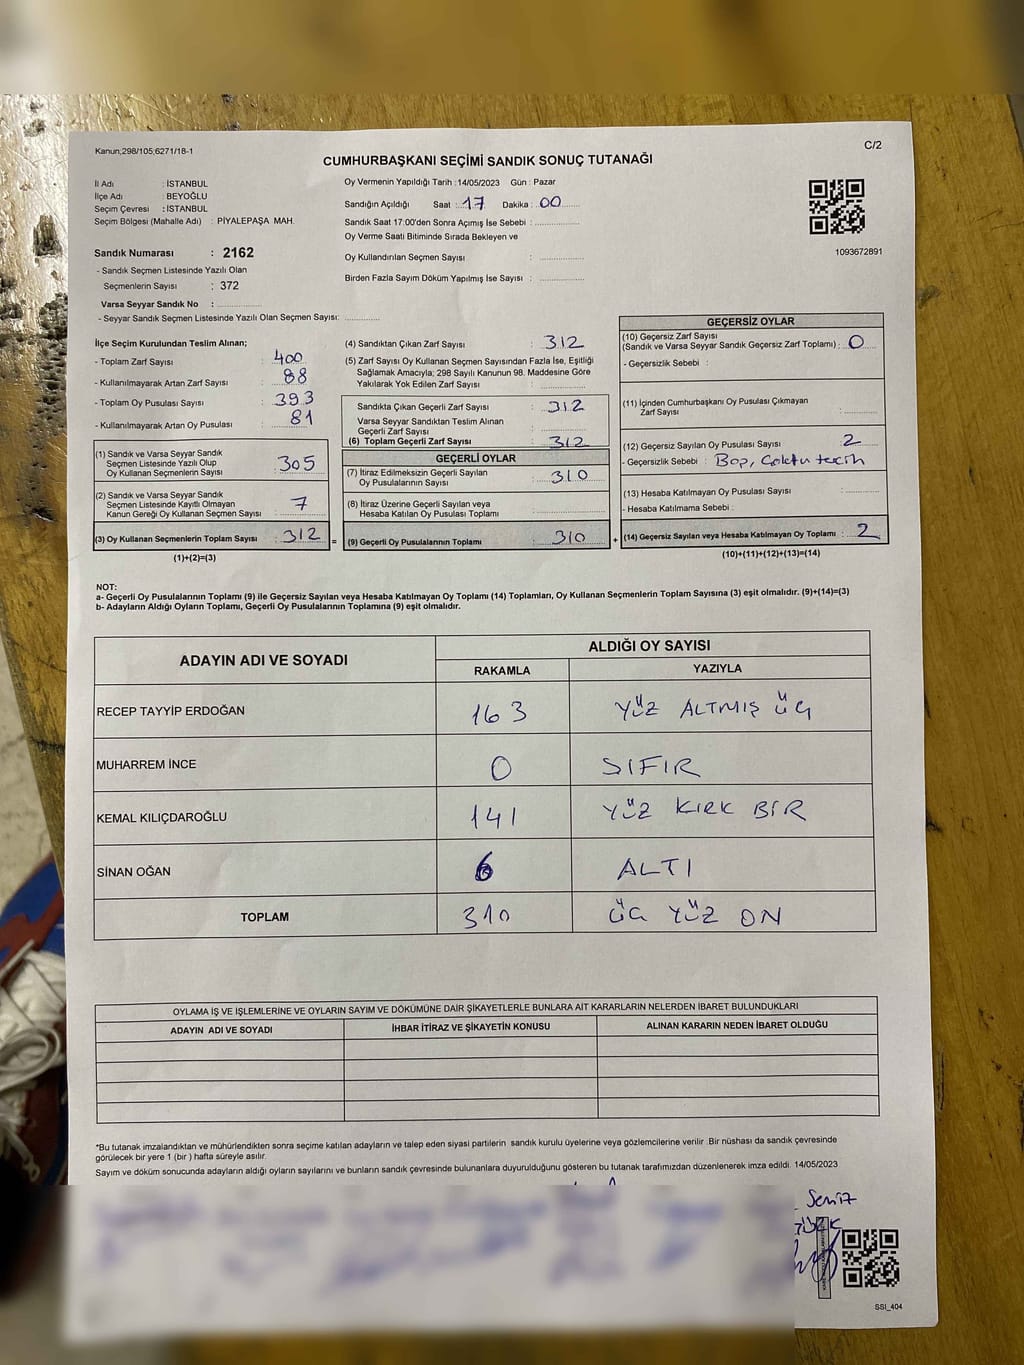 Kanun;298/105;6271/18-1
C/2
CUMHURBAŞKANI SEÇİMİ SANDIK SONUÇ TUTANAĞI
İl Adı : İSTANBUL
İlçe Adı : BEYOĞLU
Seçim Çevresi : İSTANBUL
Seçim Bölgesi (Mahalle Adı) : PİYALEPAŞA MAH.
Oy Vermenin Yapıldığı Tarih :14/05/2023 Gün : Pazar
Sandığın Açıldığı Saat : 17 Dakika : 00
Sandık Saat 17:00'den Sonra Açımış İse Sebebi :
Oy Verme Saati Bitiminde Sırada Bekleyen ve
Oy Kullandırılan Seçmen Sayısı :
Birden Fazla Sayım Döküm Yapılmış İse Sayısı :
1093672891
Sandık Numarası : 2162
- Sandık Seçmen Listesinde Yazılı Olan
Seçmenlerin Sayısı : 372
Varsa Seyyar Sandık No :
- Seyyar Sandık Seçmen Listesinde Yazılı Olan Seçmen Sayısı:
İlçe Seçim Kurulundan Teslim Alınan;
- Toplam Zarf Sayısı : 400
- Kullanılmayarak Artan Zarf Sayısı : 88
- Toplam Oy Pusulası Sayısı : 393
- Kullanılmayarak Artan Oy Pusulası : 81
(1) Sandık ve Varsa Seyyar Sandık
Seçmen Listesinde Yazılı Olup
Oy Kullanan Seçmenlerin Sayısı : 305
(2) Sandık ve Varsa Seyyar Sandık
Seçmen Listesinde Kayıtlı Olmayan
Kanun Gereği Oy Kullanan Seçmen Sayısı : 7
(3) Oy Kullanan Seçmenlerin Toplam Sayısı : 312 =
(1)+(2)=(3)
(4) Sandıktan Çıkan Zarf Sayısı : 312
(5) Zarf Sayısı Oy Kullanan Seçmen Sayısından Fazla İse, Eşitliği
Sağlamak Amacıyla; 298 Sayılı Kanunun 98. Maddesine Göre
Yakılarak Yok Edilen Zarf Sayısı :
Sandıkta Çıkan Geçerli Zarf Sayısı : 312
Varsa Seyyar Sandıktan Teslim Alınan
Geçerli Zarf Sayısı :
(6) Toplam Geçerli Zarf Sayısı : 312
GEÇERLİ OYLAR
(7) İtiraz Edilmeksizin Geçerli Sayılan
Oy Pusulalarının Sayısı : 310
(8) İtiraz Üzerine Geçerli Sayılan veya
Hesaba Katılan Oy Pusulası Toplamı :
(9) Geçerli Oy Pusulalarının Toplamı : 310 +
GEÇERSİZ OYLAR
(10) Geçersiz Zarf Sayısı
(Sandık ve Varsa Seyyar Sandık Geçersiz Zarf Toplamı) : 0
- Geçersizlik Sebebi :
(11) İçinden Cumhurbaşkanı Oy Pusulası Çıkmayan
Zarf Sayısı :
(12) Geçersiz Sayılan Oy Pusulası Sayısı : 2
- Geçersizlik Sebebi :
(13) Hesaba Katılmayan Oy Pusulası Sayısı :
- Hesaba Katılmama Sebebi :
(14) Geçersiz Sayılan veya Hesaba Katılmayan Oy Toplamı : 2
(10)+(11)+(12)+(13)=(14)
NOT:
a- Geçerli Oy Pusulalarının Toplamı (9) ile Geçersiz Sayılan veya Hesaba Katılmayan Oy Toplamı (14) Toplamları, Oy Kullanan Seçmenlerin Toplam Sayısına (3) eşit olmalıdır. (9)+(14)=(3)
b- Adayların Aldığı Oyların Toplamı, Geçerli Oy Pusulalarının Toplamına (9) eşit olmalıdır.
ADAYIN ADI VE SOYADI
ALDIĞI OY SAYISI
RAKAMLA YAZIYLA
RECEP TAYYİP ERDOĞAN 163 YÜZ ALTMIŞ ÜÇ
MUHARREM İNCE 0 SIFIR
KEMAL KILIÇDAROĞLU 141 YÜZ KIRK BİR
SİNAN OĞAN 6 ALTI
TOPLAM 310 ÜÇ YÜZ ON
OYLAMA İŞ VE İŞLEMLERİNE VE OYLARIN SAYIM VE DÖKÜMÜNE DAİR ŞİKAYETLERLE BUNLARA AİT KARARLARIN NELERDEN İBARET BULUNDUKLARI
ADAYIN ADI VE SOYADI İHBAR İTİRAZ VE ŞİKAYETİN KONUSU ALINAN KARARIN NEDEN İBARET OLDUĞU
*Bu tutanak imzalandıktan ve mühürlendikten sonra seçime katılan adayların ve talep eden siyasi partilerin sandık kurulu üyelerine veya gözlemcilerine verilir .Bir nüshası da sandık çevresinde
görülecek bir yere 1 (bir ) hafta süreyle asılır.
Sayım ve döküm sonucunda adayların aldığı oyların sayılarını ve bunların sandık çevresinde bulunanlara duyurulduğunu gösteren bu tutanak tarafımızdan düzenlenerek imza edildi. 14/05/2023
SSI_404